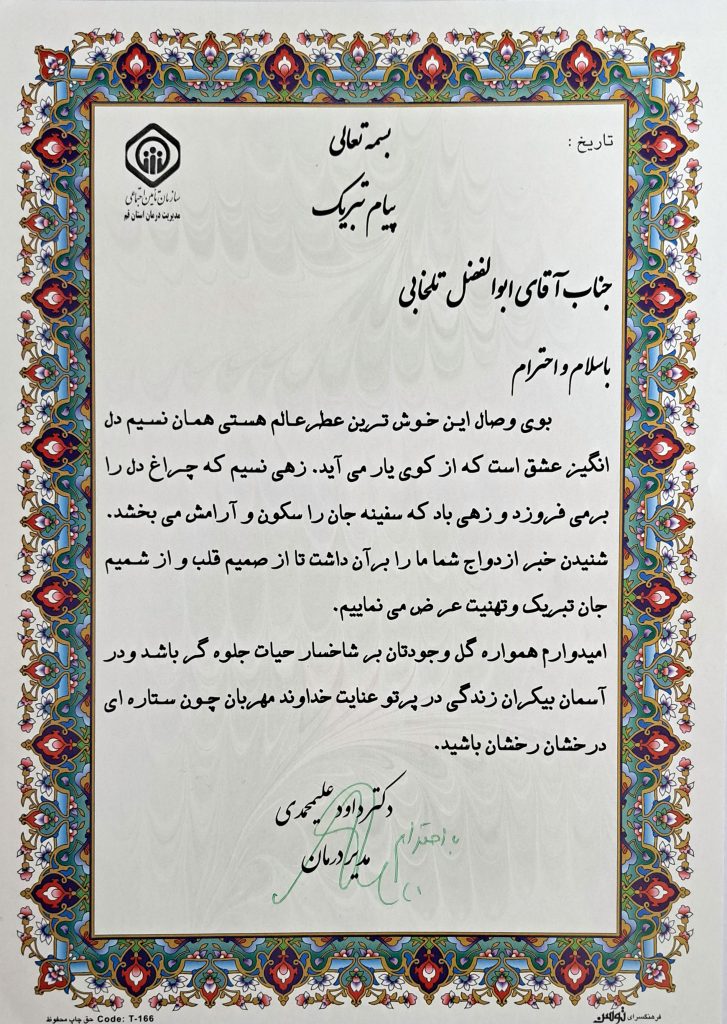 بسمه تعالی
تاریخ :
سازمان تأمین اجتماعی
مدیریت درمان استان قم
پیام تبریک
جناب آقای ابوالفضل تلخابی
باسلام و احترام
بوی وصال این خوش ترین عطر عالم هستی همان نسیم دل
انگیز عشق است که از کوی یار می آید. زهی نسیم که چراغ دل را
برمی فروزد و زهی باد که سفینه جان را سکون و آرامش می بخشد.
شنیدن خبر ازدواج شما ما را برآن داشت تا از صمیم قلب و از شمیم
جان تبریک وتهنیت عرض می نماییم.
امیدوارم همواره گل وجودتان بر شاخسار حیات جلوه گر باشد ودر
آسمان بیکران زندگی در پرتو عنایت خداوند مهربان چون ستاره ای
درخشان رخشان باشید.
دکتر داود علیمحمدی
با احترام
مدیر درمان
حق چاپ محفوظ Code: T-166
فرهنگسرای نوین